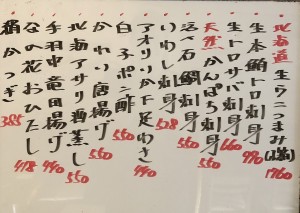 北海道生ウニつまみ(塩) 1760
生本鮪トロ刺身 990
生トロサバ刺身 660
天然かんぱち刺身 550
活〆石鯛刺身 550
いわし刺身 528
アオリいか下足わさ 440
白子ポン酢 550
かれい唐揚げ 550
北海アサリ酒蒸し 550
手羽中竜田揚げ 440
なの花おひたし 418
絹かつぎ 385